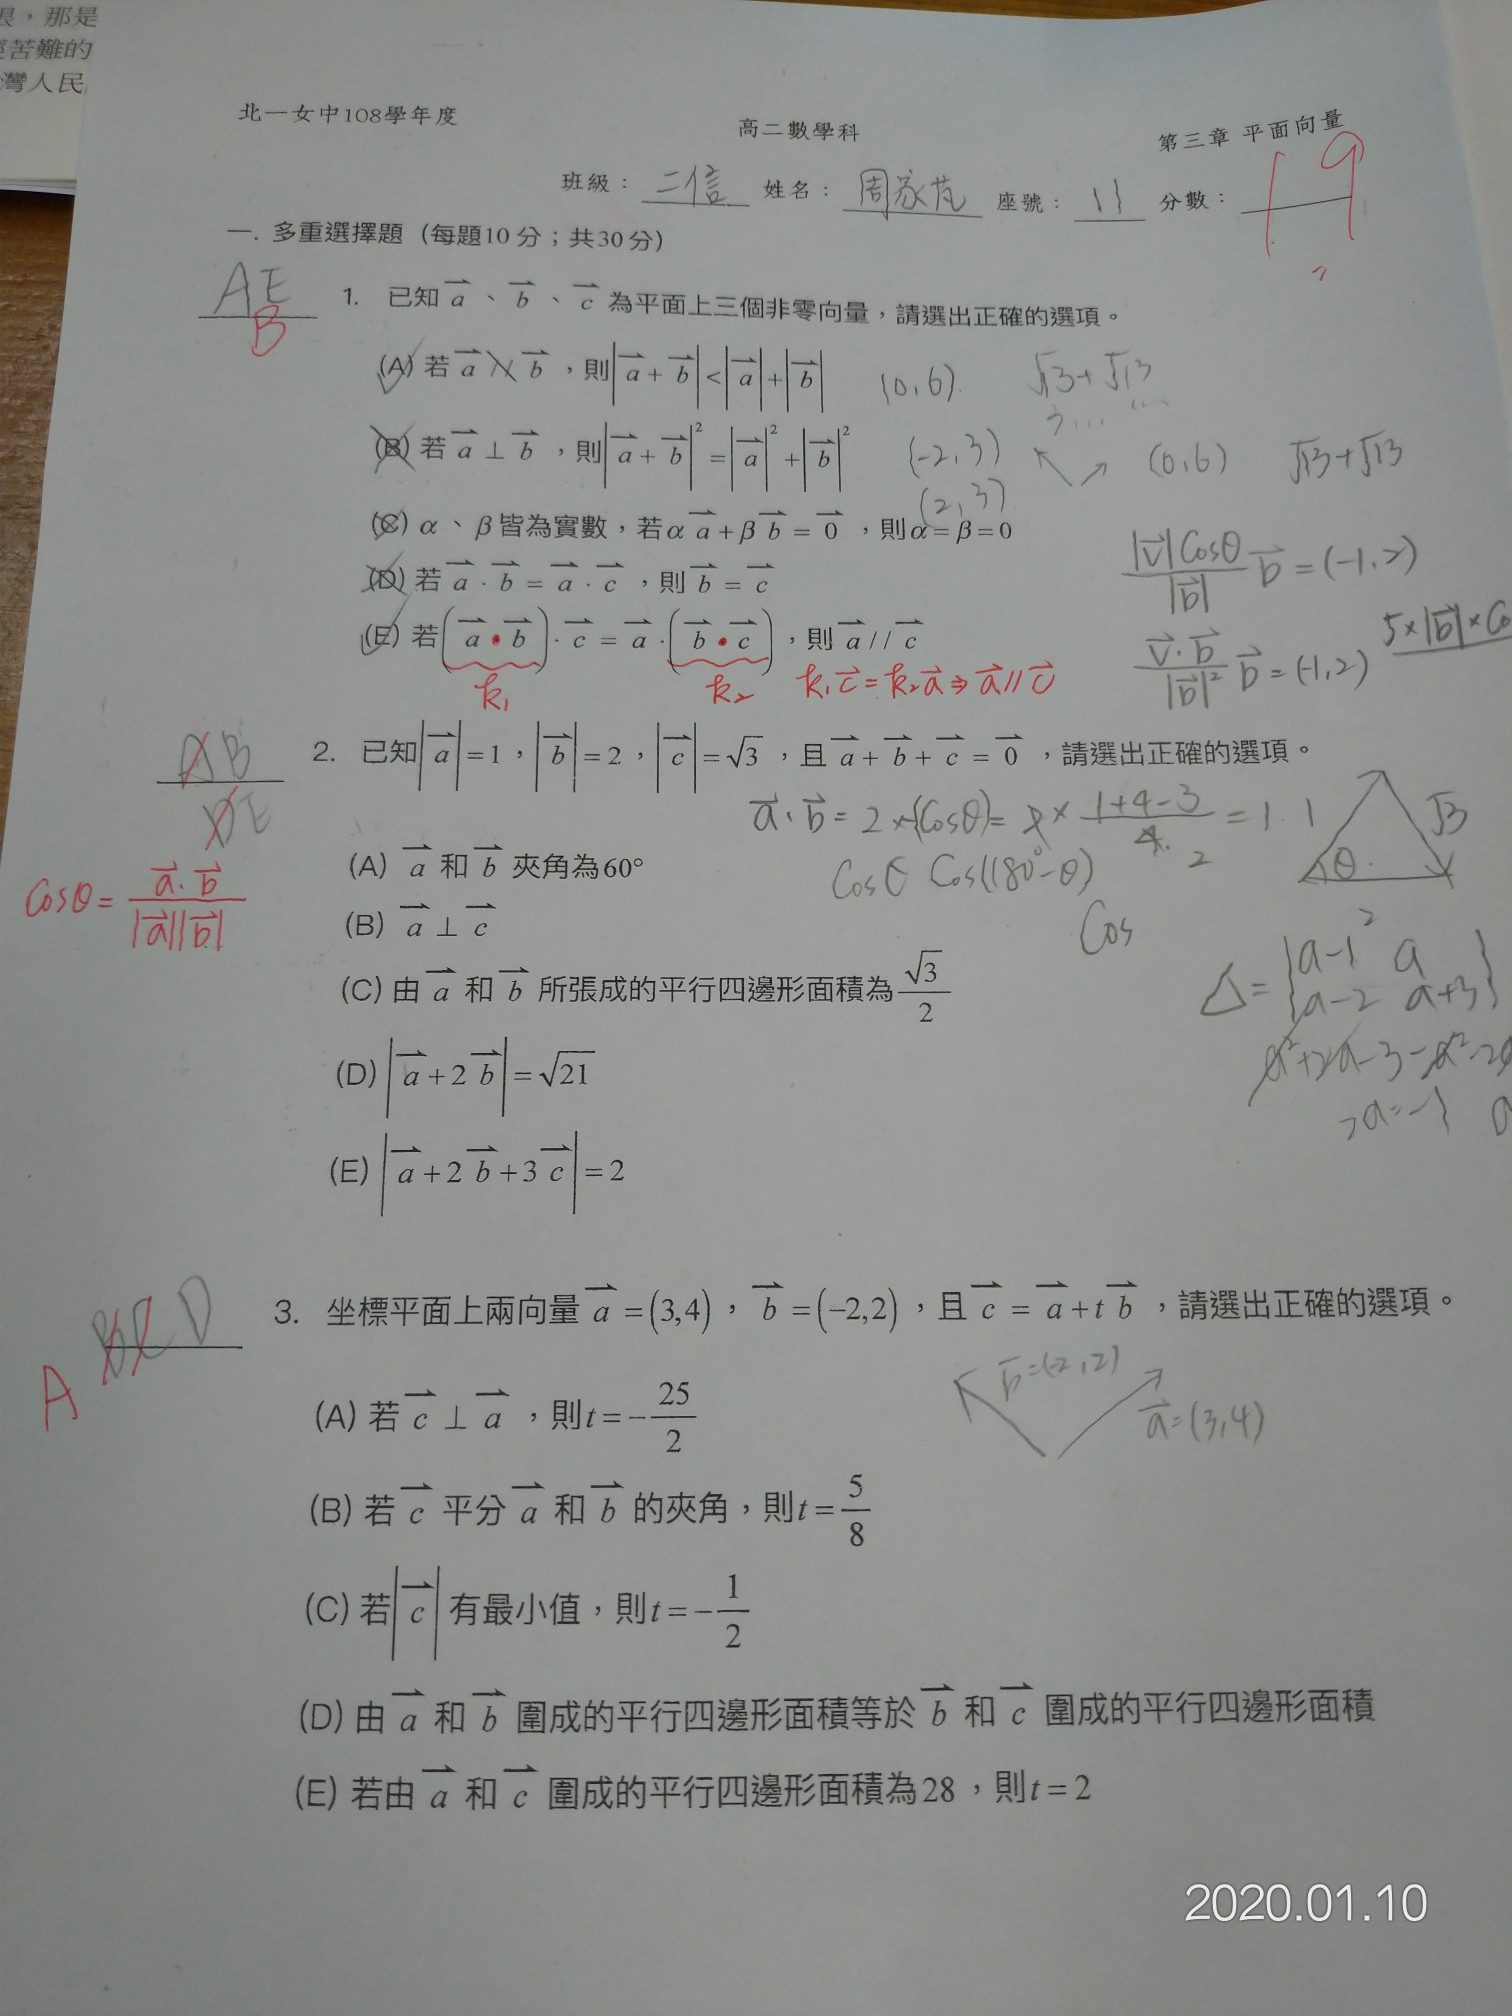 那是
苦難的
灣人民
北一女中108學年度
高二數學科
第三章 平面向量
班級： 二信 姓名： 周家 座號： 11 分數： 19
一. 多重選擇題 (每題10分；共30分)
AE
B
1. 已知 a 、 b 、 c 為平面上三個非零向量，請選出正確的選項。
(A) 若 a ∦ b ，則|a + b| < |a| + |b|
(0,6) √13+√13
3...
(B) 若 a ⊥ b ，則|a + b|² = |a|² + |b|²
(-2,3) (0,6) √13+√13
(2,3)
(C) α、β皆為實數，若α a + β b = 0 ，則α = β = 0
|v|cosθ/|b| b = (-1,2)
(D) 若 a · b = a · c ，則 b = c
(E) 若(a · b) · c = a · (b · c) ，則 a // c
5×|b|×Co
v·b/|b|² b = (-1,2)
k₁ k₂ k₁c = k₂a ⇒ a // c
AB
DE
2. 已知|a| = 1，|b| = 2，|c| = √3 ，且 a + b + c = 0 ，請選出正確的選項。
a·b = 2×(-cosθ) = × 1+4-3/4 = 1
1 √3 θ 2
(A) a 和 b 夾角為60°
cosθ cos(180°-θ)
cosθ = a·b/|a||b|
(B) a ⊥ c
cos
(C) 由 a 和 b 所張成的平行四邊形面積為 √3/2
△ = |a-1 a
a-2 a+3|
(D) |a + 2b| = √21
a²+2a-3-a²-2a
(E) |a + 2b + 3c| = 2
BCD
A
3. 坐標平面上兩向量 a = (3,4)， b = (−2,2)，且 c = a + t b ，請選出正確的選項。
b=(-2,2)
a=(3,4)
(A) 若 c ⊥ a ，則t = −25/2
(B) 若 c 平分 a 和 b 的夾角，則t = 5/8
(C) 若|c|有最小值，則t = −1/2
(D) 由 a 和 b 圍成的平行四邊形面積等於 b 和 c 圍成的平行四邊形面積
(E) 若由 a 和 c 圍成的平行四邊形面積為28，則t = 2
2020.01.10